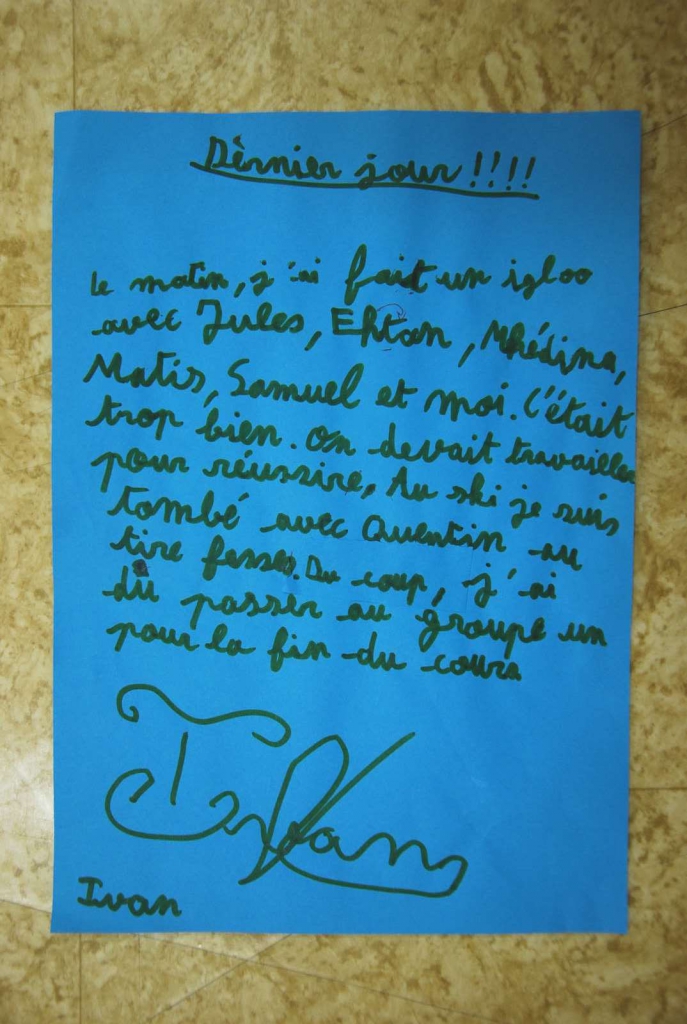 Dèrnier jour !!!!
le matin, j'ai fait un igloo
avec Jules, Ehtan, Mhédina,
Matis, Samuel et moi. C'était
trop bien. On devait travailler
pour réussire. Au ski je suis
tombé avec Quentin au
tire fesses. Du coup, j'ai
dû passer au groupe un
pour la fin du cours
Ivan
Ivan